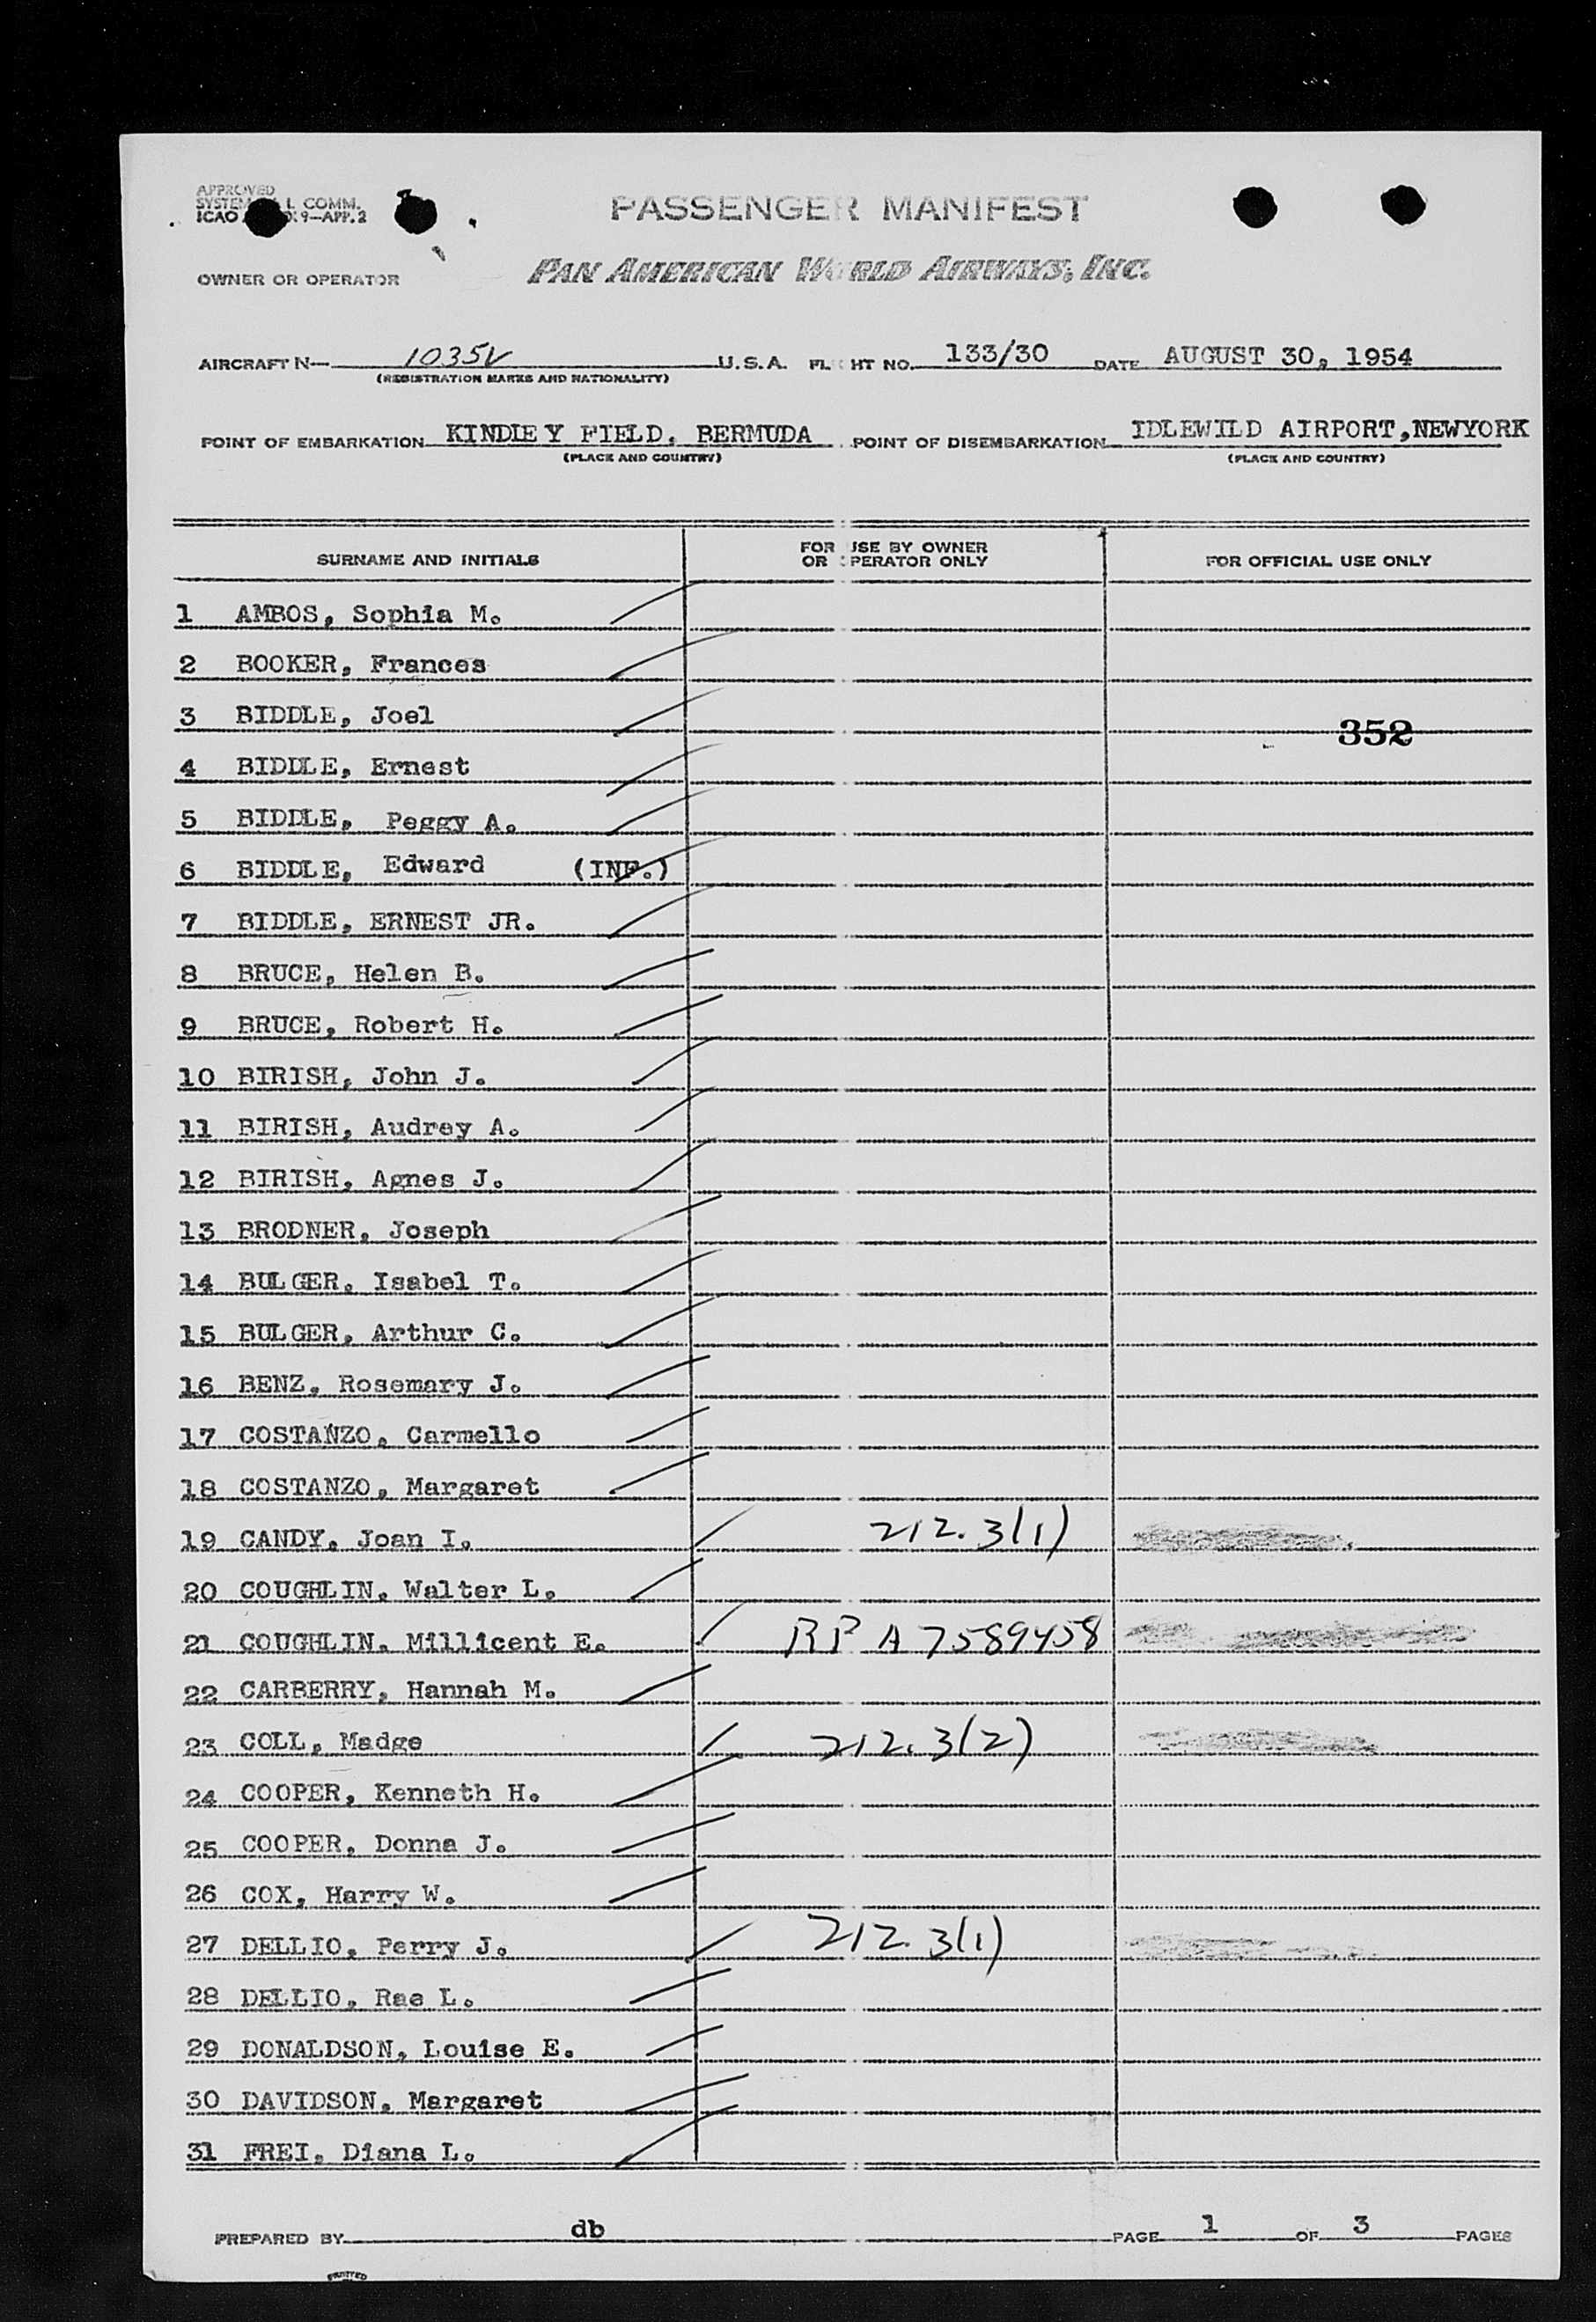 APPROVED
SYSTEM L COMM.
ICAO 9—APP. 2
PASSENGER MANIFEST
OWNER OR OPERATOR PAN AMERICAN WORLD AIRWAYS, INC.
AIRCRAFT N— 1035V U.S.A. FLIGHT NO. 133/30 DATE AUGUST 30, 1954
(REGISTRATION MARKS AND NATIONALITY)
POINT OF EMBARKATION KINDLEY FIELD, BERMUDA POINT OF DISEMBARKATION IDLEWILD AIRPORT,NEWYORK
(PLACE AND COUNTRY) (PLACE AND COUNTRY)
SURNAME AND INITIALS FOR USE BY OWNER OR OPERATOR ONLY FOR OFFICIAL USE ONLY
1 AMBOS, Sophia M.
2 BOOKER, Frances
3 BIDDLE, Joel 352
4 BIDDLE, Ernest
5 BIDDLE, Peggy A.
6 BIDDLE, Edward (INF.)
7 BIDDLE, ERNEST JR.
8 BRUCE, Helen B.
9 BRUCE, Robert H.
10 BIRISH, John J.
11 BIRISH, Audrey A.
12 BIRISH, Agnes J.
13 BRODNER, Joseph
14 BULGER, Isabel T.
15 BULGER, Arthur C.
16 BENZ, Rosemary J.
17 COSTANZO, Carmello
18 COSTANZO, Margaret
19 CANDY, Joan I. 212.3(1)
20 COUGHLIN, Walter L.
21 COUGHLIN, Millicent E. RP A7589458
22 CARBERRY, Hannah M.
23 COLL, Madge 212.3(2)
24 COOPER, Kenneth H.
25 COOPER, Donna J.
26 COX, Harry W.
27 DELLIO, Perry J. 212.3(1)
28 DELLIO, Rae L.
29 DONALDSON, Louise E.
30 DAVIDSON, Margaret
31 FREI, Diana L.
PREPARED BY db PAGE 1 OF 3 PAGES
PRINTED